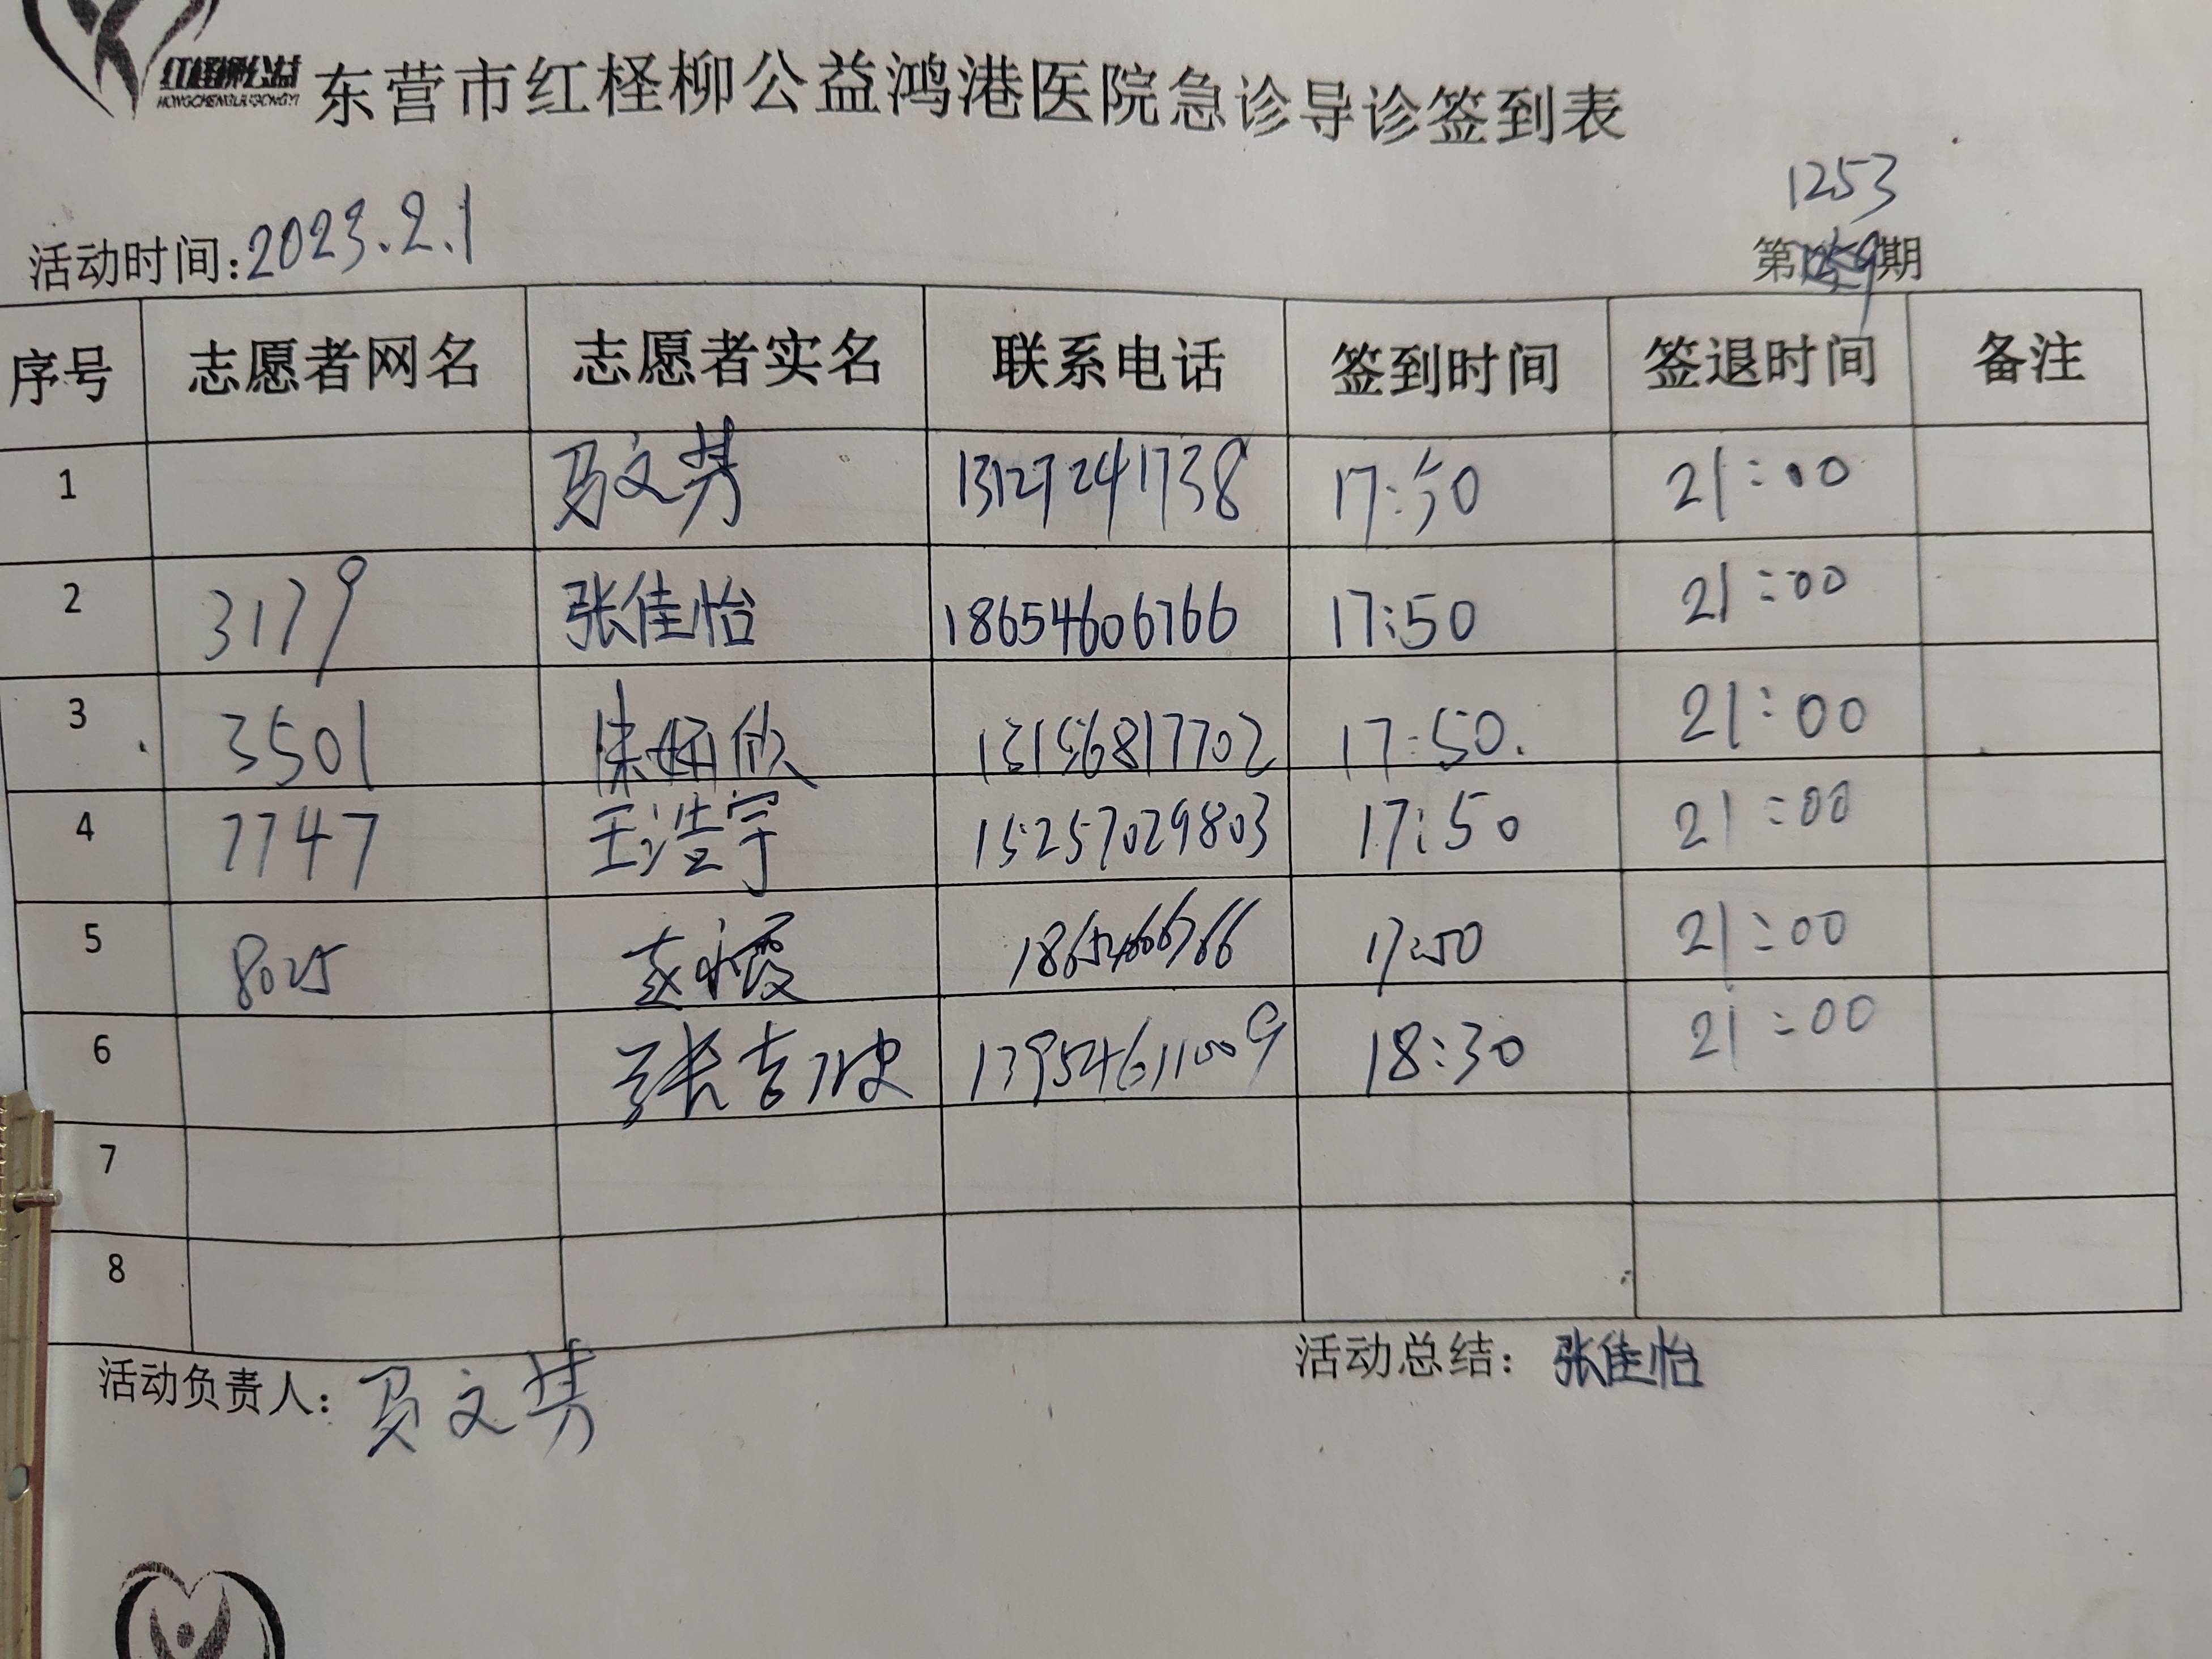 红柽柳公益
HONGCHENGLIUGONGYI
东营市红柽柳公益鸿港医院急诊导诊签到表
1253
活动时间:2023.2.1 第期
序号 志愿者网名 志愿者实名 联系电话 签到时间 签退时间 备注
1 马文芳 13127241738 17:50 21:00
2 3179 张佳怡 18654606766 17:50 21:00
3 3501 欣 13156817702 17:50. 21:00
4 7747 王浩宇 15257029803 17:50 21:00
5 8025 霞 17:50 21:00
6 张吉 13954611009 18:30 21:00
7
8
活动负责人: 马文芳 活动总结: 张佳怡